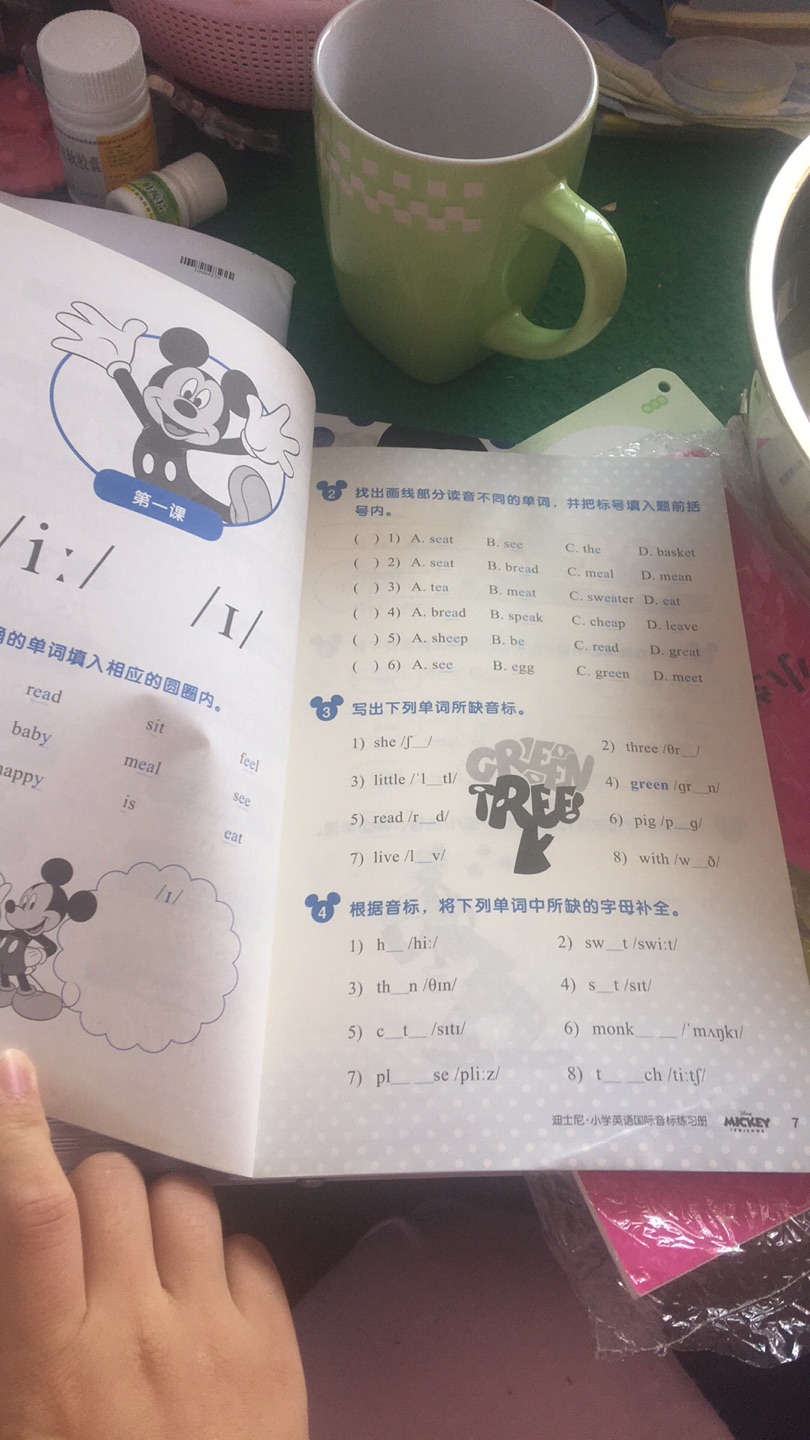 第一课
/iː/
/ɪ/
的单词填入相应的圆圈内。
read
sit
feel
baby
meal
see
happy
is
eat
/ɪ/
2 找出画线部分读音不同的单词，并把标号填入题前括
号内。
( ) 1) A. seat B. see C. the D. basket
( ) 2) A. seat B. bread C. meal D. mean
( ) 3) A. tea B. meat C. sweater D. eat
( ) 4) A. bread B. speak C. cheap D. leave
( ) 5) A. sheep B. be C. read D. great
( ) 6) A. see B. egg C. green D. meet
3 写出下列单词所缺音标。
1) she /ʃ__/ 2) three /θr__/
3) little /ˈl__tl/ 4) green /ɡr__n/
5) read /r__d/ 6) pig /p__ɡ/
7) live /l__v/ 8) with /w__ð/
GREEN
TREE
4 根据音标，将下列单词中所缺的字母补全。
1) h__ /hiː/ 2) sw__t /swiːt/
3) th__n /θɪn/ 4) s__t /sɪt/
5) c__t__ /sɪtɪ/ 6) monk__ __ /ˈmʌŋkɪ/
7) pl__ __se /pliːz/ 8) t__ __ch /tiːtʃ/
迪士尼·小学英语国际音标练习册 Disney MICKEY & FRIENDS 7